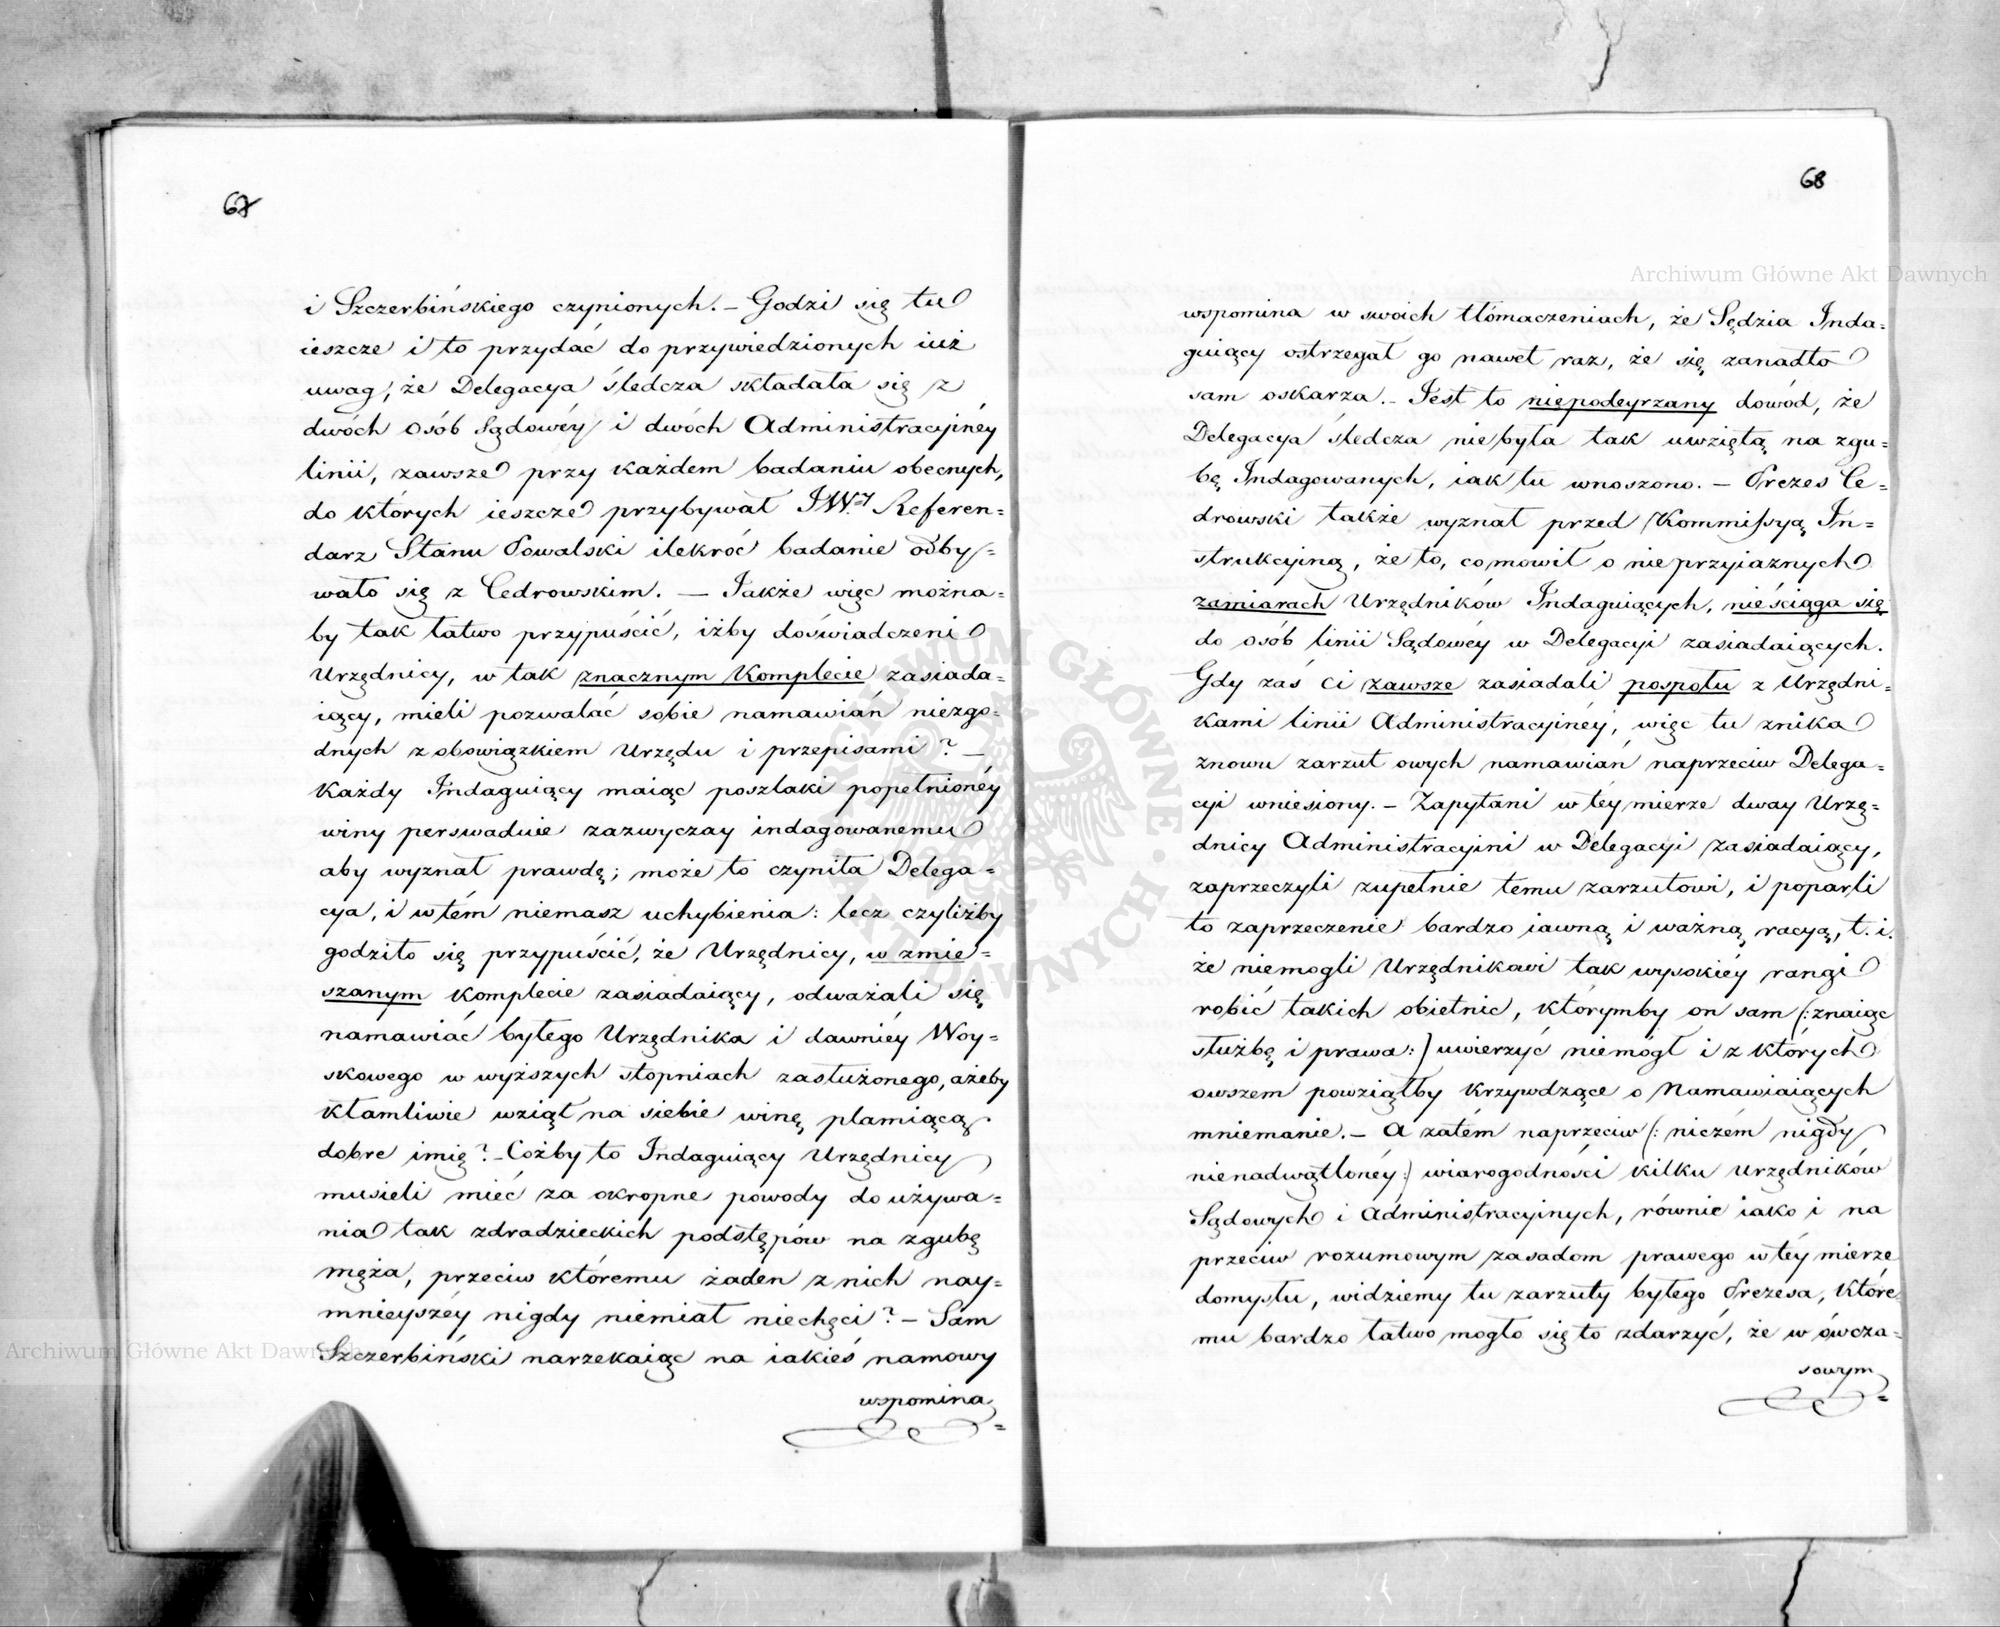 67
i Szczerbińskiego czynionych. — Godzi się tu
ieszcze i to przydać do przywiedzionych iuż
uwag, że Delegacya śledcza składała się z
dwóch osób Sądowéy i dwóch Administracyinéy
linii, zawsze przy każdem badaniu obecnych,
do których ieszcze przybywał JW.ʸ Referen=
darz Stanu Powalski ilekroć badanie odby=
wało się z Cedrowskim. — Jakże więc można=
by tak łatwo przypuścić, iżby doświadczeni
Urzędnicy, w tak znacznym Komplecie zasiada=
iący, mieli pozwalać sobie namawiań niezgo=
dnych z obowiązkiem Urzędu i przepisami? —
Każdy Indaguiący maiąc poszlaki popełnionéy
winy perswaduie zazwyczay indagowanemu
aby wyznał prawdę; może to czyniła Delega=
cya, i w tém niemasz uchybienia: lecz czyliżby
godziło się przypuścić, że Urzędnicy, w zmie=
szanym Komplecie zasiadaiący, odważali się
namawiać byłego Urzędnika i dawniéy Woy=
skowego w wyższych stopniach zasłużonego, ażeby
kłamliwie wziął na siebie winę plamiącą
dobre imię? — Cóżby to Indaguiący Urzędnicy
musieli mieć za okropne powody do używa=
nia tak zdradzieckich podstępów na zgubę
męża, przeciw któremu żaden z nich nay=
mnieyszéy nigdy niemiał niechęci? — Sam
Szczerbiński narzekaiąc na iakieś namowy
wspomina
68
wspomina w swoich tłómaczeniach, że Sędzia Inda=
guiący ostrzegał go nawet raz, że się zanadto
sam oskarża. — Jest to niepodeyrzany dowód, że
Delegacya śledcza niebyła tak uwziętą na zgu=
bę Indagowanych, iak tu wnoszono. — Prezes Ce=
drowski także wyznał przed Kommissyą In=
strukcyiną, że to, co mowił o nieprzyiaznych
zamiarach Urzędników Indaguiących, nieściąga się
do osób linii Sądowéy w Delegacyi zasiadaiących.
Gdy zaś ci zawsze zasiadali pospołu z Urzędni=
kami linii Administracyinéy, więc tu znika
znowu zarzut owych namawiań naprzeciw Delega=
cyi wniesiony. — Zapytani w téy mierze dway Urzę=
dnicy Administracyini w Delegacyi zasiadaiący,
zaprzeczyli zupełnie temu zarzutowi, i poparli
to zaprzeczenie bardzo iawną i ważną racyą, t. i.
że niemogli Urzędnikowi tak wysokiéy rangi
robić takich obietnic, którymby on sam (: znaiąc
służbę i prawa :) uwierzyć niemógł i z których
owszem powziąłby krzywdzące o Namawiaiących
mniemanie. — A zatém naprzeciw (: niczém nigdy
nienadwątlonéy :) wiarogodności kilku Urzędników
Sądowych i Administracyinych, równie iako i na
przeciw rozumowym zasadom prawego w téy mierze
domysłu, widziemy tu zarzuty byłego Prezesa, które=
mu bardzo łatwo mogło się to zdarzyć, że w ówcza=
sowym
Archiwum Główne Akt Dawnych
Archiwum Główne Akt Dawnych
ARCHIWUM GŁÓWNE AKT DAWNYCH